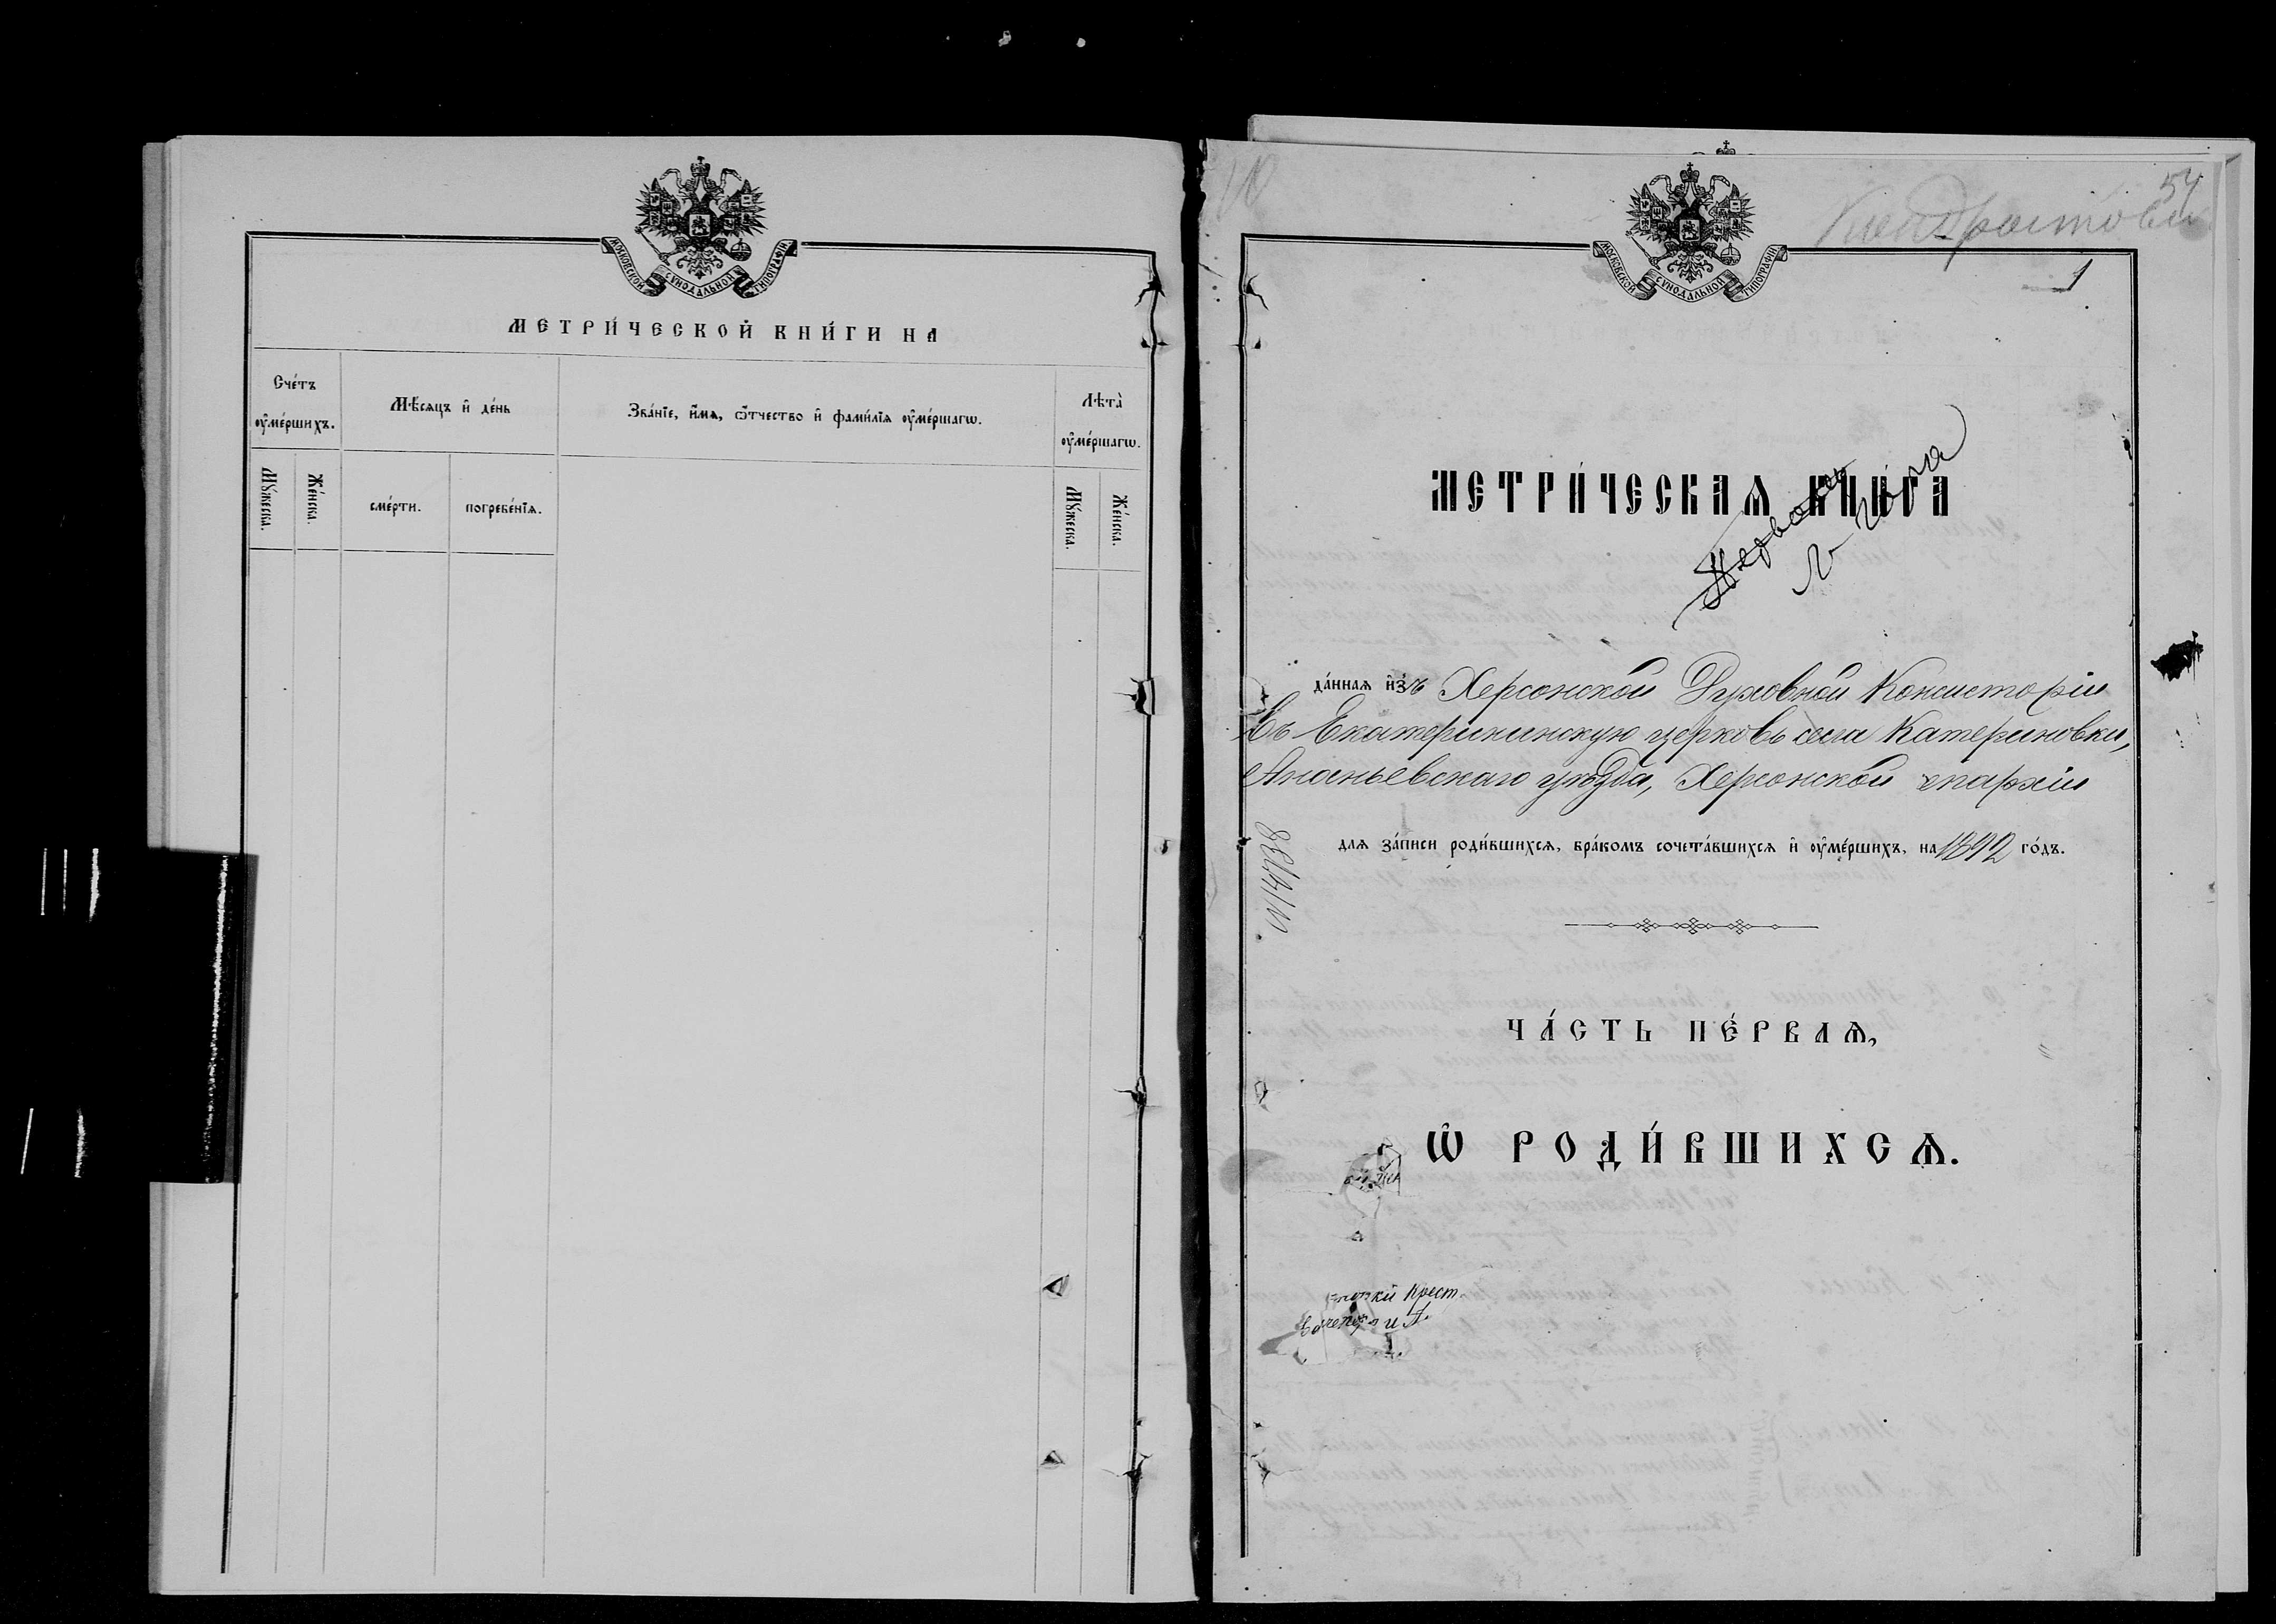 МОСКОВСКОЙ СУНОДАЛЬНОЙ ТИПОГРАФІИ
МЕТРИ́ЧЕСКОЙ КНИ́ГИ НА
Сче́тъ оу҆ме́ршихъ.
Мѣ́сяцъ и҆ де́нь
Зва́нїе, и҆́мѧ, ѻ҆́тчество и҆ фами́лїѧ оу҆ме́ршагѡ.
Лѣта̀ оу҆ме́ршагѡ.
Мꙋ́жеска.
Же́нска.
сме́рти.
погребе́нїѧ.
Мꙋ́жеска.
Же́нска.
10
54
МОСКОВСКОЙ СУНОДАЛЬНОЙ ТИПОГРАФІИ
1
МЕТРИ́ЧЕСКАѦ КНИ́ГА
да́ннаѧ и҆зъ Херсонской Духовной Консисторіи
въ Екатерининскую церковь села Катериновки,
Ананьевскаго уѣзда, Херсонской епархіи
длѧ за́писи роди́вшихсѧ, бра́комъ сочета́вшихсѧ и҆ оу҆ме́ршихъ, на 1892 го́дъ.
ЧА́СТЬ ПЕ́РВАѦ,
Ѡ҆ РОДИ́ВШИХСѦ.
Крест.